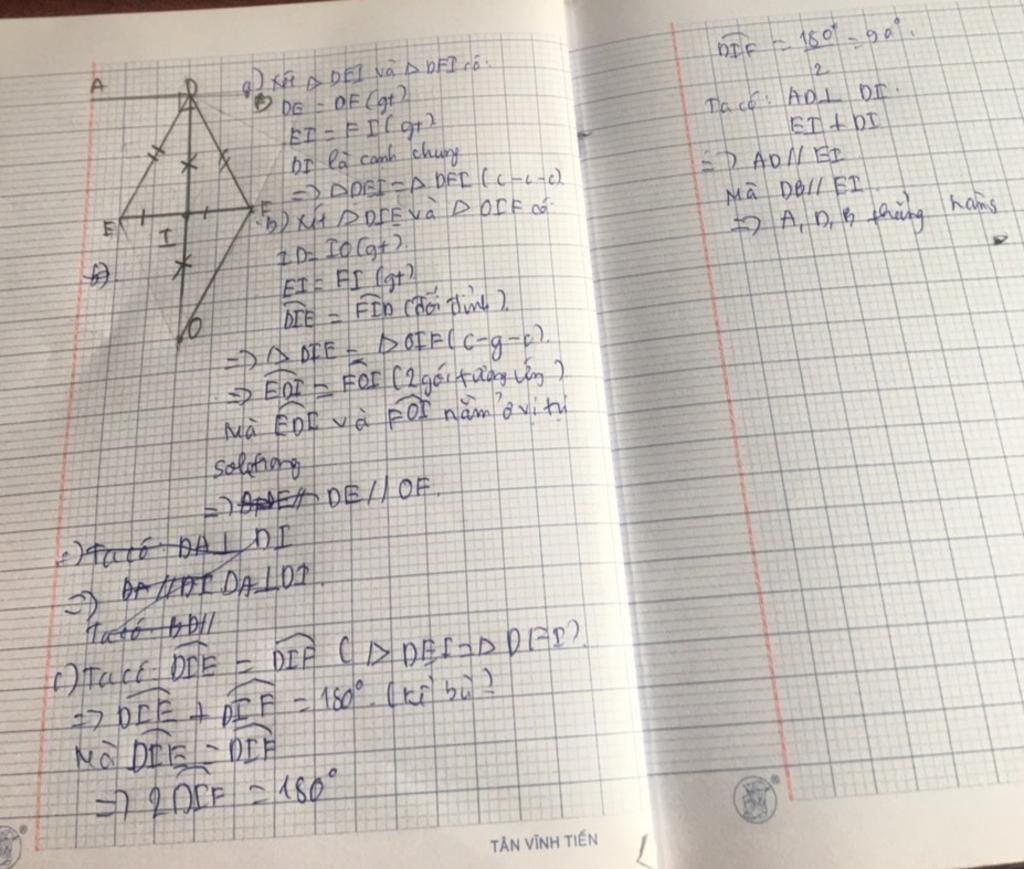 A
D
E
F
I
O
a) Xét △ DEI và △ DFI có:
DE = DF (gt)
EI = FI (gt)
DI là cạnh chung
=> △DEI = △DFI (c-c-c)
b) Xét △DIE và △ OIF có
ID = IO (gt).
EI = FI (gt)
DIE = FIO (đối đỉnh).
=> △ DIE = △OIF (c-g-c).
=> EDI = FOI (2 góc tương ứng)
Mà EDI và FOI nằm ở vị trí
soletrong
=> DE // OF.
c) Ta có DA ⊥ DI
=> DA // DI DA ⊥ DI.
Ta có DB //
c) Ta có: DIE = DIF (△ DEI = △ DFI)
=> DIE + DIF = 180° (kề bù)
Mà DIE = DIF
=> 2DIF = 180°
DIF = 180°/2 = 90°.
Ta có: AD ⊥ DI.
EI ⊥ DI
=> AD // EI
Mà DB // EI
=> A, D, B thẳng hàng
TÂN VĨNH TIẾN